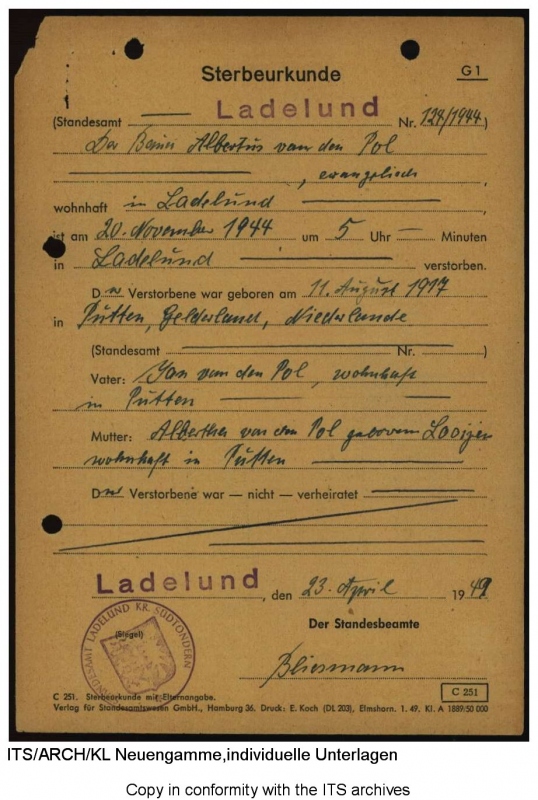 Sterbeurkunde
G 1
(Standesamt Ladelund Nr. 128/1944)
Der Bauer Albertus van den Pol
, evangelisch
wohnhaft in Ladelund
ist am 20. November 1944 um 5 Uhr — Minuten
in Ladelund verstorben.
Der Verstorbene war geboren am 11. August 1917
in Putten, Gelderland, Niederlande
(Standesamt Nr. )
Vater: Jan van den Pol, wohnhaft
in Putten
Mutter: Albertha van den Pol geborene Looijen
wohnhaft in Putten
Der Verstorbene war — nicht — verheiratet
Ladelund, den 23. April 1949
Der Standesbeamte
(Siegel)
STANDESAMT LADELUND KR. SÜDTONDERN
C 251. Sterbeurkunde mit Elternangabe.
C 251
Verlag für Standesamtswesen GmbH., Hamburg 36. Druck: E. Koch (DL 203), Elmshorn. 1. 49. Kl. A 1889: 50 000
ITS/ARCH/KL Neuengamme,individuelle Unterlagen
Copy in conformity with the ITS archives